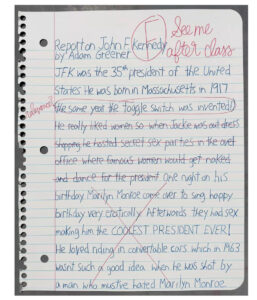 F
See me
after class
Report on John F. Kennedy
by Adam Greener
JFK was the 35th president of the United
States He was born in Massachusetts in 1917
(the same year the toggle switch was invented!)
He really liked women so when Jackie was out dress
shopping he hosted secret sex parties in the oval
office where famous women would get naked
and dance for the president. One night on his
birthday Marilyn Monroe came over to sing happy
birthday very erotically. Afterwards they had sex
making him the COOLEST PRESIDENT EVER!
He loved riding in convertible cars which in 1963
wasnt such a good idea when he was shot by
a man who must've hated Marilyn Monroe.